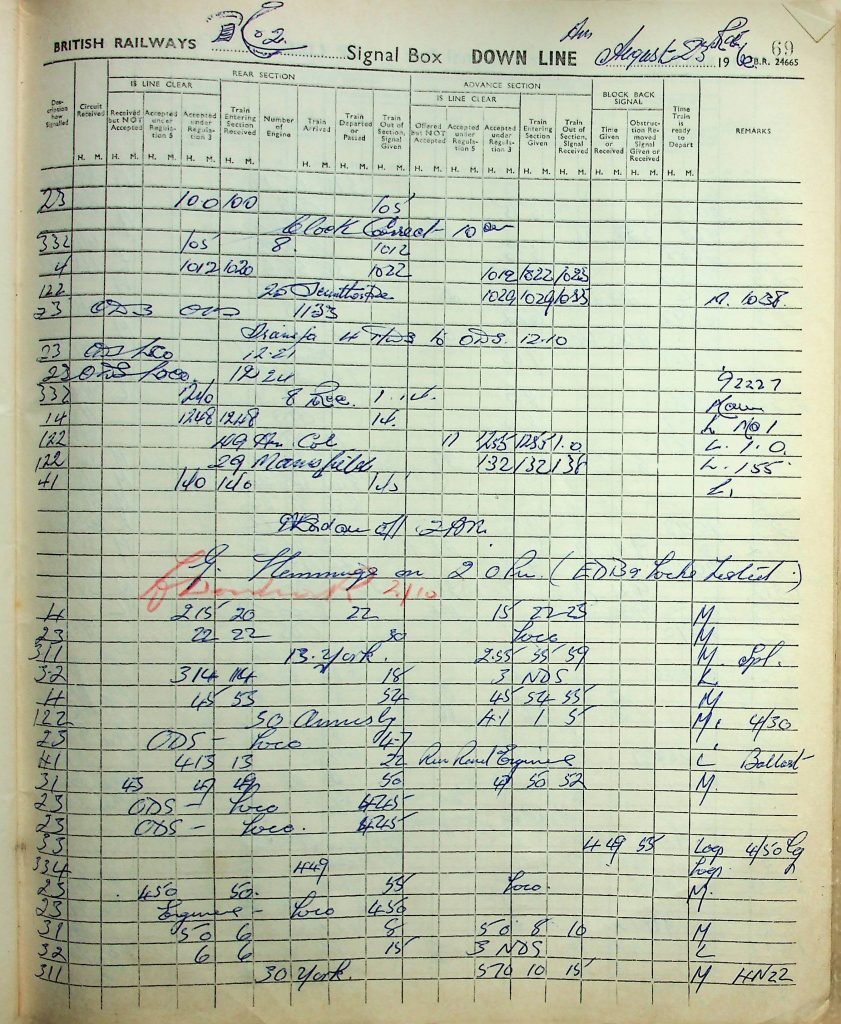 BRITISH RAILWAYS Signal Box DOWN LINE August 23 1960 B.R. 24665 69
REAR SECTION ADVANCE SECTION BLOCK BACK SIGNAL
IS LINE CLEAR IS LINE CLEAR
Description how Signalled Circuit Received Received but NOT Accepted Accepted under Regulation 5 Accepted under Regulation 3 Train Entering Section Received Number of Engine Train Arrived Train Departed or Passed Train Out of Section, Signal Given Offered but NOT Accepted Accepted under Regulation 5 Accepted under Regulation 3 Train Entering Section Given Train Out of Section, Signal Received Time Given or Received Obstruction Removed Signal Given or Received Time Train is ready to Depart REMARKS
H. M. H. M. H. M. H. M. H. M. H. M. H. M. H. M. H. M. H. M. H. M. H. M. H. M. H. M. H. M. H. M.
23 100 100 105
Clock Correct 10 am
332 105 8. 1012
4 1012 1020 1022 1019 1022 1023
122 25 1029 1029 1033 1038
23 ODS 1133
4 ODS 12.10
23 Loco 12.21
23 ODS Loco 12 24 92227
332 1240 8 1.14
14 1248 1248 14 L No 1
122 Col 17 1255 1255 1.0 L. 1.0
122 29 Mansfield 132 132 138 L. 155
41 140 140 145 L.
off 2 PM
Hemmings on 2 0 Pm. (
2/10
4 215 20 22 15 22 23 M
23 22 22 30 Loco M
311 13. York. 2.55 55 59 M. Spl.
32 314 14 18 3 NDS L
4 45 53 54 45 54 55 M
122 50 Annesly 4.1 1 5 M. 4/30
23 ODS - Loco 4.7
41 413 13 22 Run Round Engine L Ballast
31 43 49 49 50 49 50 52 M.
23 ODS - Loco 445
23 ODS - Loco. 445
33 449 55 Loop 4/50
334 449 Loop
23 450 50. 55 Loco. M.
23 Engine - Loco 450
31 50 6 8 50 8 10 M
32 6 6 15 3 NDS L
311 30 York. 510 10 15 M 4N22